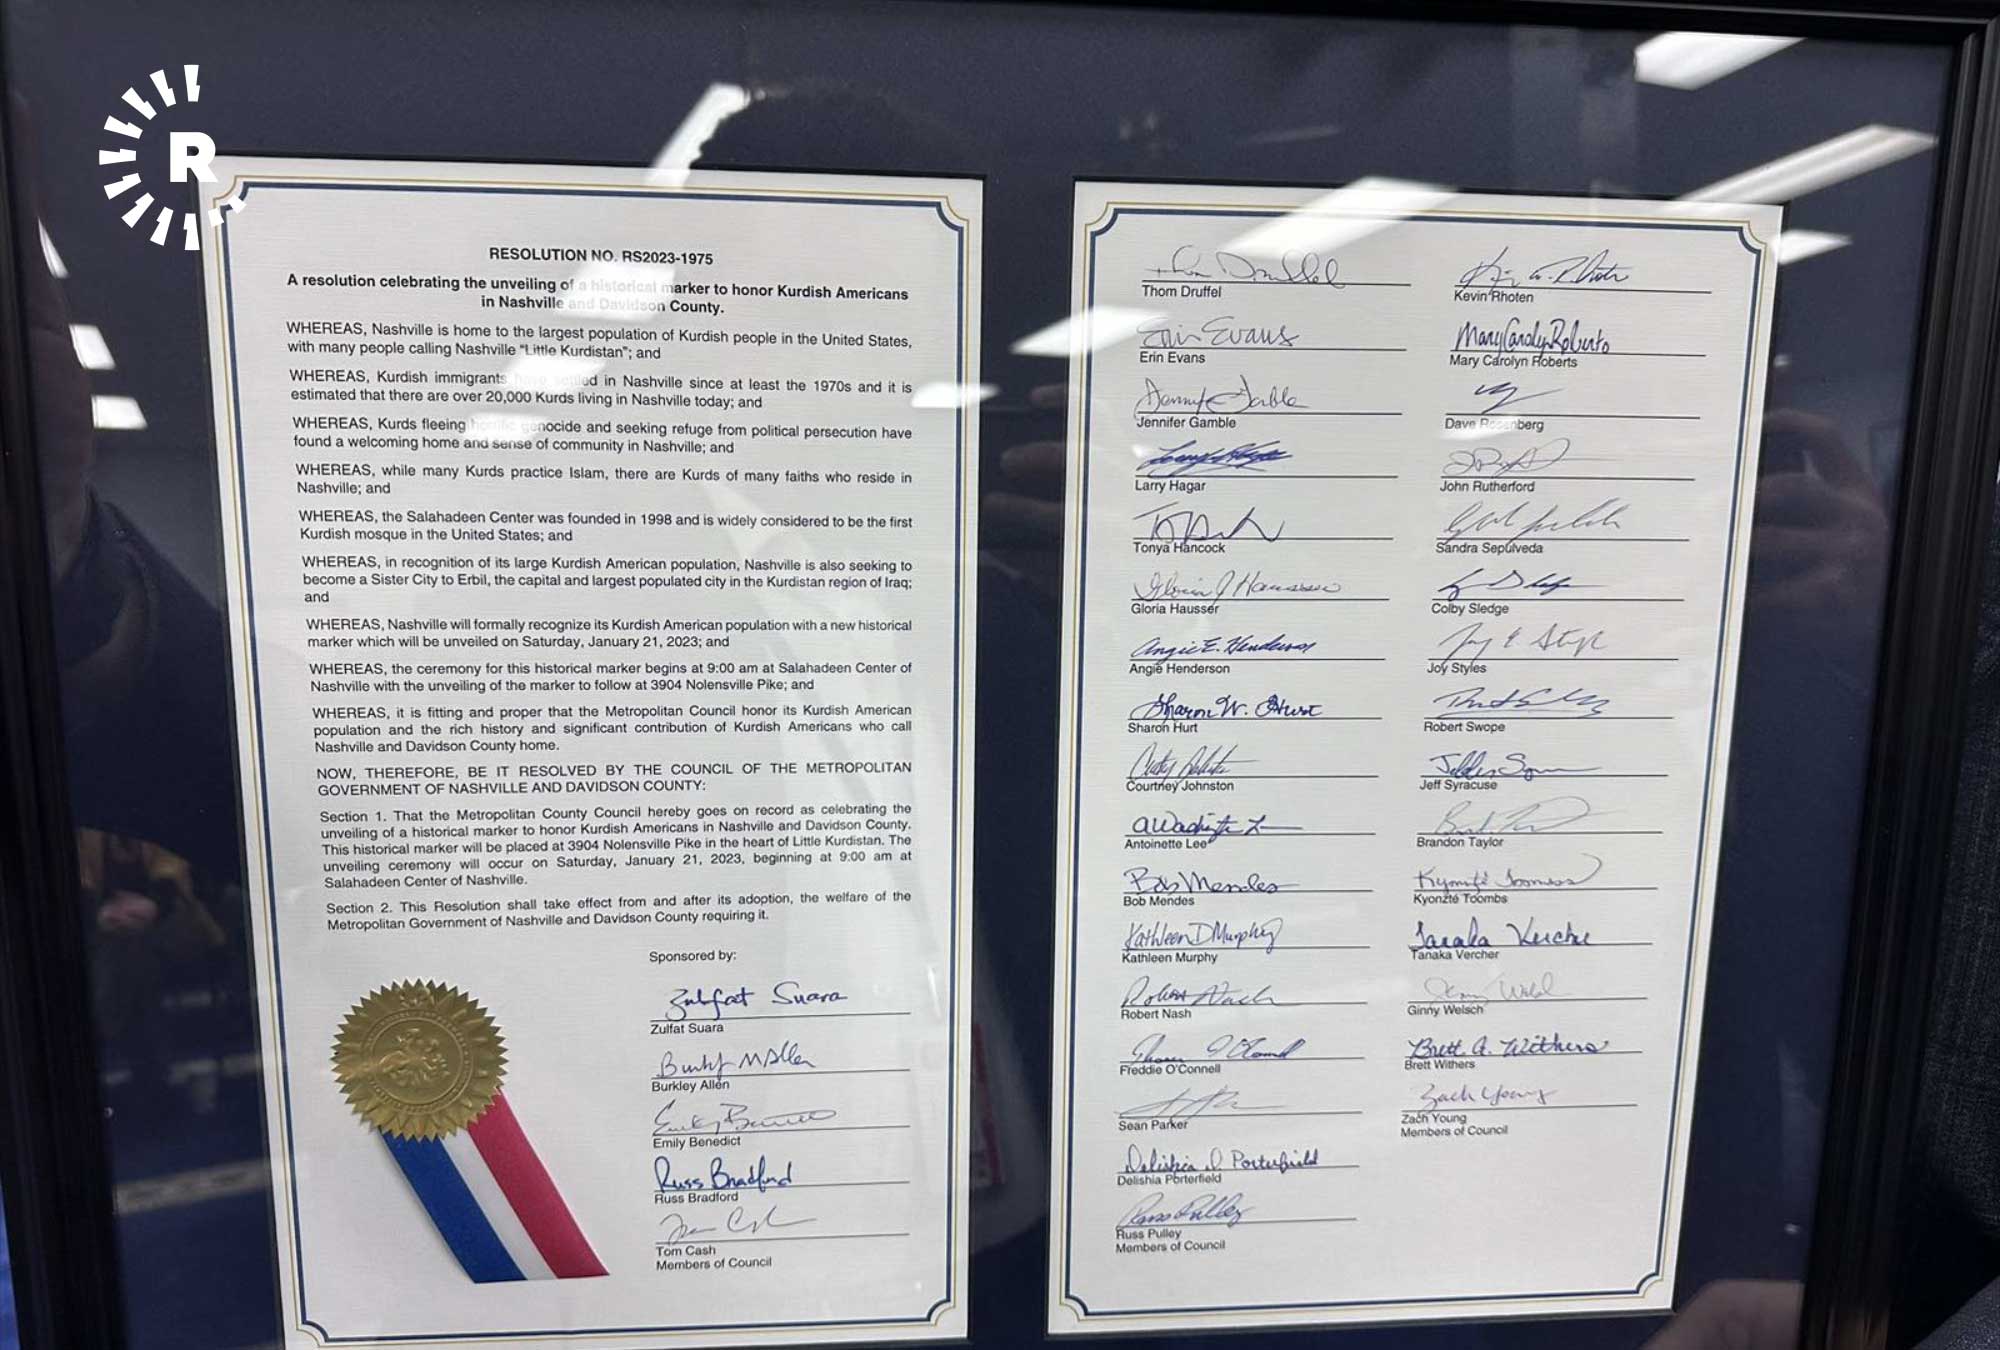 R
RESOLUTION NO. RS2023-1975
A resolution celebrating the unveiling of a historical marker to honor Kurdish Americans
in Nashville and Davidson County.
WHEREAS, Nashville is home to the largest population of Kurdish people in the United States,
with many people calling Nashville "Little Kurdistan"; and
WHEREAS, Kurdish immigrants have settled in Nashville since at least the 1970s and it is
estimated that there are over 20,000 Kurds living in Nashville today; and
WHEREAS, Kurds fleeing horrific genocide and seeking refuge from political persecution have
found a welcoming home and sense of community in Nashville; and
WHEREAS, while many Kurds practice Islam, there are Kurds of many faiths who reside in
Nashville; and
WHEREAS, the Salahadeen Center was founded in 1998 and is widely considered to be the first
Kurdish mosque in the United States; and
WHEREAS, in recognition of its large Kurdish American population, Nashville is also seeking to
become a Sister City to Erbil, the capital and largest populated city in the Kurdistan region of Iraq;
and
WHEREAS, Nashville will formally recognize its Kurdish American population with a new historical
marker which will be unveiled on Saturday, January 21, 2023; and
WHEREAS, the ceremony for this historical marker begins at 9:00 am at Salahadeen Center of
Nashville with the unveiling of the marker to follow at 3904 Nolensville Pike; and
WHEREAS, it is fitting and proper that the Metropolitan Council honor its Kurdish American
population and the rich history and significant contribution of Kurdish Americans who call
Nashville and Davidson County home.
NOW, THEREFORE, BE IT RESOLVED BY THE COUNCIL OF THE METROPOLITAN
GOVERNMENT OF NASHVILLE AND DAVIDSON COUNTY:
Section 1. That the Metropolitan County Council hereby goes on record as celebrating the
unveiling of a historical marker to honor Kurdish Americans in Nashville and Davidson County.
This historical marker will be placed at 3904 Nolensville Pike in the heart of Little Kurdistan. The
unveiling ceremony will occur on Saturday, January 21, 2023, beginning at 9:00 am at
Salahadeen Center of Nashville.
Section 2. This Resolution shall take effect from and after its adoption, the welfare of the
Metropolitan Government of Nashville and Davidson County requiring it.
Sponsored by:
Zulfat Suara
Zulfat Suara
Burkley Allen
Emily Benedict
Russ Bradford
Russ Bradford
Tom Cash
Members of Council
Thom Druffel
Erin Evans
Erin Evans
Jennifer Gamble
Larry Hagar
Tonya Hancock
Gloria Hausser
Angie E. Henderson
Angie Henderson
Sharon W. Hurt
Sharon Hurt
Courtney Johnston
Antoinette Lee
Bob Mendes
Bob Mendes
Kathleen D Murphy
Kathleen Murphy
Robert Nash
Robert Nash
Freddie O'Connell
Sean Parker
Delishia D Porterfield
Delishia Porterfield
Russ Pulley
Russ Pulley
Members of Council
Kevin Rhoten
Mary Carolyn Roberts
Mary Carolyn Roberts
Dave Rosenberg
John Rutherford
Sandra Sepulveda
Colby Sledge
Joy Styles
Robert Swope
Jeff Syracuse
Brandon Taylor
Kyonzté Toombs
Tanaka Vercher
Tanaka Vercher
Ginny Welsch
Brett A. Withers
Brett Withers
Zach Young
Zach Young
Members of Council